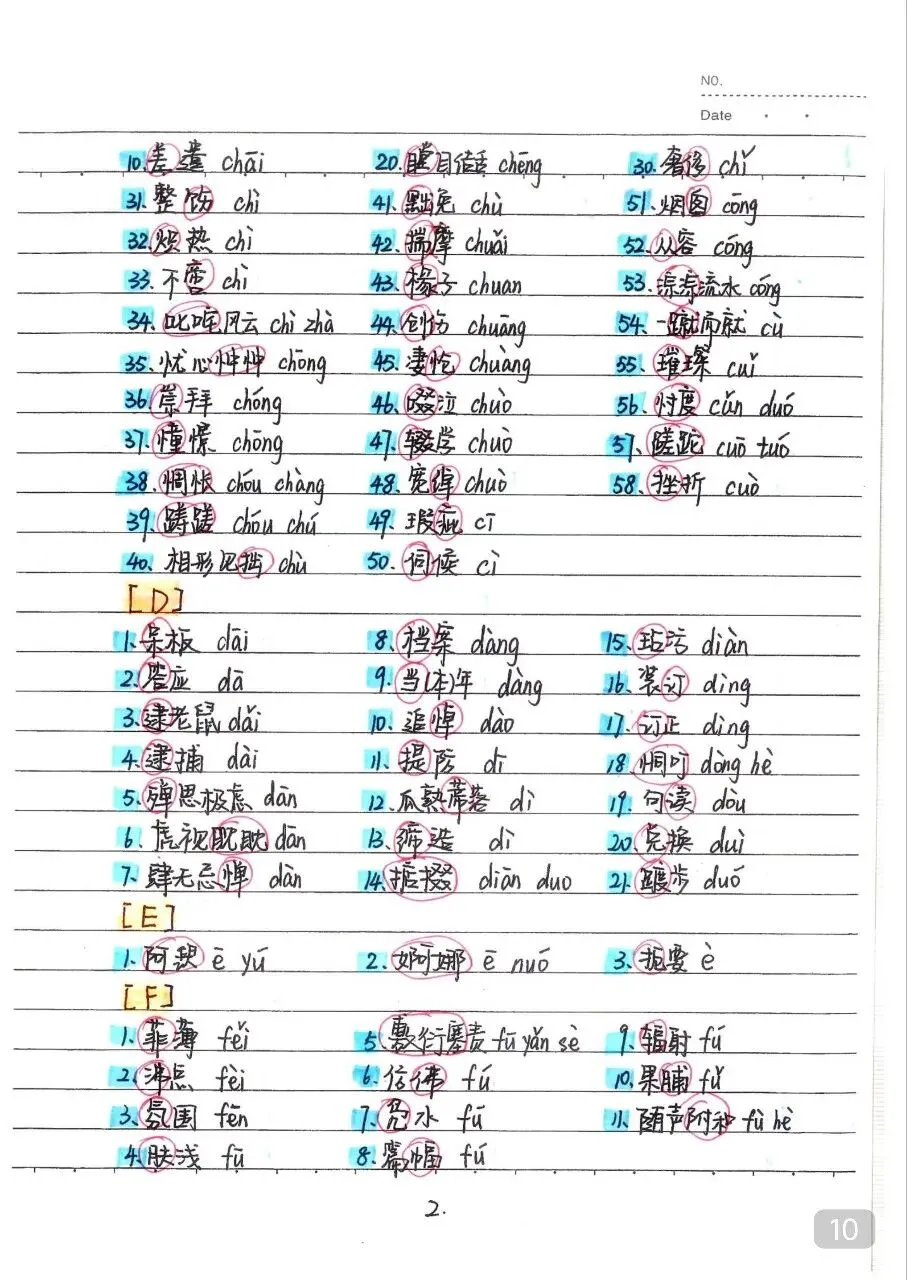 NO.
Date
10. 差遣 chāi 20. 瞠目结舌 chēng 30. 奢侈 chǐ
31. 整饬 chì 41. 黜免 chù 51. 烟囱 cōng
32. 炽热 chì 42. 揣摩 chuǎi 52. 从容 cóng
33. 不啻 chì 43. 椽子 chuan 53. 淙淙流水 cóng
34. 叱咤风云 chì zhà 44. 创伤 chuāng 54. 一蹴而就 cù
35. 忧心忡忡 chōng 45. 凄怆 chuàng 55. 璀璨 cuǐ
36. 崇拜 chóng 46. 啜泣 chuò 56. 忖度 cǔn duó
37. 憧憬 chōng 47. 辍学 chuò 57. 蹉跎 cuō tuó
38. 惆怅 chóu chàng 48. 宽绰 chuò 58. 挫折 cuò
39. 踌躇 chóu chú 49. 瑕疵 cī
40. 相形见拙 chù 50. 伺候 cì
[D]
1. 呆板 dāi 8. 档案 dàng 15. 玷污 diàn
2. 答应 dā 9. 当(本)年 dàng 16. 装订 dìng
3. 逮老鼠 dǎi 10. 追悼 dào 17. 订正 dìng
4. 逮捕 dài 11. 提防 dī 18. 恫吓 dòng hè
5. 殚思极虑 dān 12. 瓜熟蒂落 dì 19. 句读 dòu
6. 虎视眈眈 dān 13. 缔造 dì 20. 兑换 duì
7. 肆无忌惮 dàn 14. 掂掇 diān duo 21. 踱步 duó
[E]
1. 阿谀 ē yú 2. 婀娜 ē nuó 3. 扼要 è
[F]
1. 菲薄 fěi 5. 敷衍塞责 fū yǎn sè 9. 辐射 fú
2. 沸点 fèi 6. 仿佛 fú 10. 果脯 fǔ
3. 氛围 fēn 7. 凫水 fú 11. 随声附和 fù hè
4. 肤浅 fū 8. 篇幅 fú
2.
10